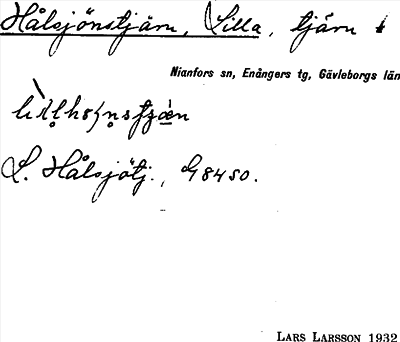 Hålsjönstjärn, Lilla, tjärn
Nianfors sn, Enångers tg, Gävleborgs län
L. Hålsjötj., G8450.
LARS LARSSON 1932